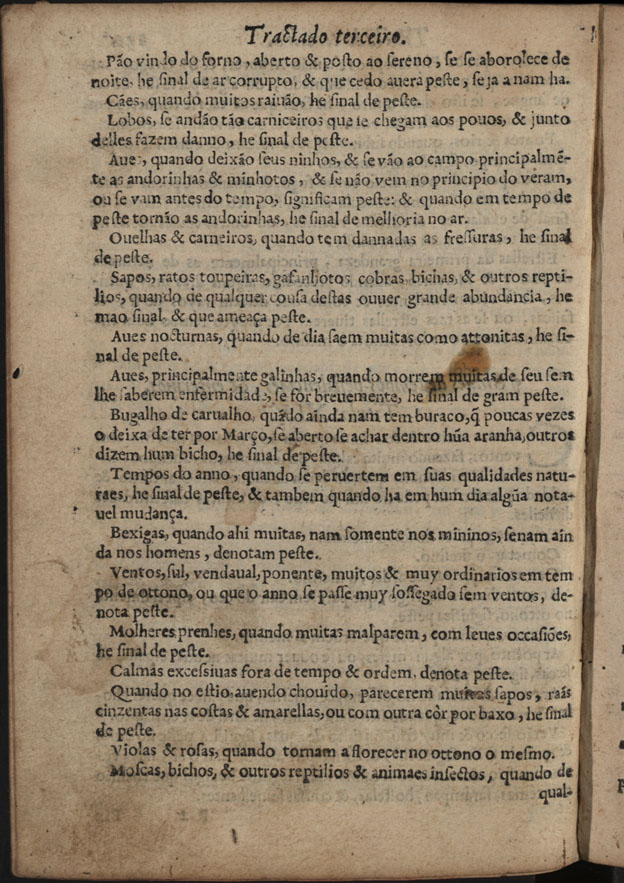 Tractado terceiro.
Pão vindo do forno, aberto & posto ao sereno, se se aborolece de
noite, he sinal de ar corrupto, & que cedo auera peste, se ja a nam ha.
Cães, quando muitos raiuão, he sinal de peste.
Lobos, se andão tão carniceiros que se chegam aos pouos, & junto
delles fazem danno, he sinal de peste.
Aues, quando deixão seus ninhos, & se vão ao campo principalmẽ-
te as andorinhas & minhotos, & se não vem no principio do veram,
ou se vam antes do tempo, significam peste: & quando em tempo de
peste tornão as andorinhas, he sinal de melhoria no ar.
Ouelhas & carneiros, quando tem dannadas as fressuras, he sinal
de peste.
Sapos, ratos toupeiras, gafanhotos cobras, bichas, & outros repti-
lios, quando de qualquer cousa destas ouuer grande abundancia, he
mao sinal, & que ameaça peste.
Aues nocturnas, quando de dia saem muitas como attonitas, he si-
nal de peste.
Aues, principalmente galinhas, quando morrem muitas de seu sem
lhe saberem enfermidade, se for breuemente, he sinal de gram peste.
Bugalho de carualho, quãdo ainda nam tem buraco, q̃ poucas vezes
o deixa de ter por Março, se aberto se achar dentro hũa aranha, outros
dizem hum bicho, he sinal de peste.
Tempos do anno, quando se peruertem em suas qualidades natu-
raes, he sinal de peste, & tambem quando ha em hum dia algũa nota-
uel mudança.
Bexigas, quando ahi muitas, nam somente nos mininos, senam ain
da nos homens, denotam peste.
Ventos, sul, vendaual, ponente, muitos & muy ordinarios em tem
po de ottono, ou que o anno se passe muy sossegado sem ventos, de-
nota peste.
Molheres prenhes, quando muitas malparem, com leues occasiões,
he sinal de peste.
Calmas excessiuas fora de tempo & ordem, denota peste.
Quando no estio, auendo chouido, parecerem muitos sapos, raãs
cinzentas nas costas & amarellas, ou com outra côr por baxo, he sinal
de peste.
Violas & rosas, quando tornam a florecer no ottono o mesmo.
Moscas, bichos, & outros reptilios & animaes insectos, quando de
qual-